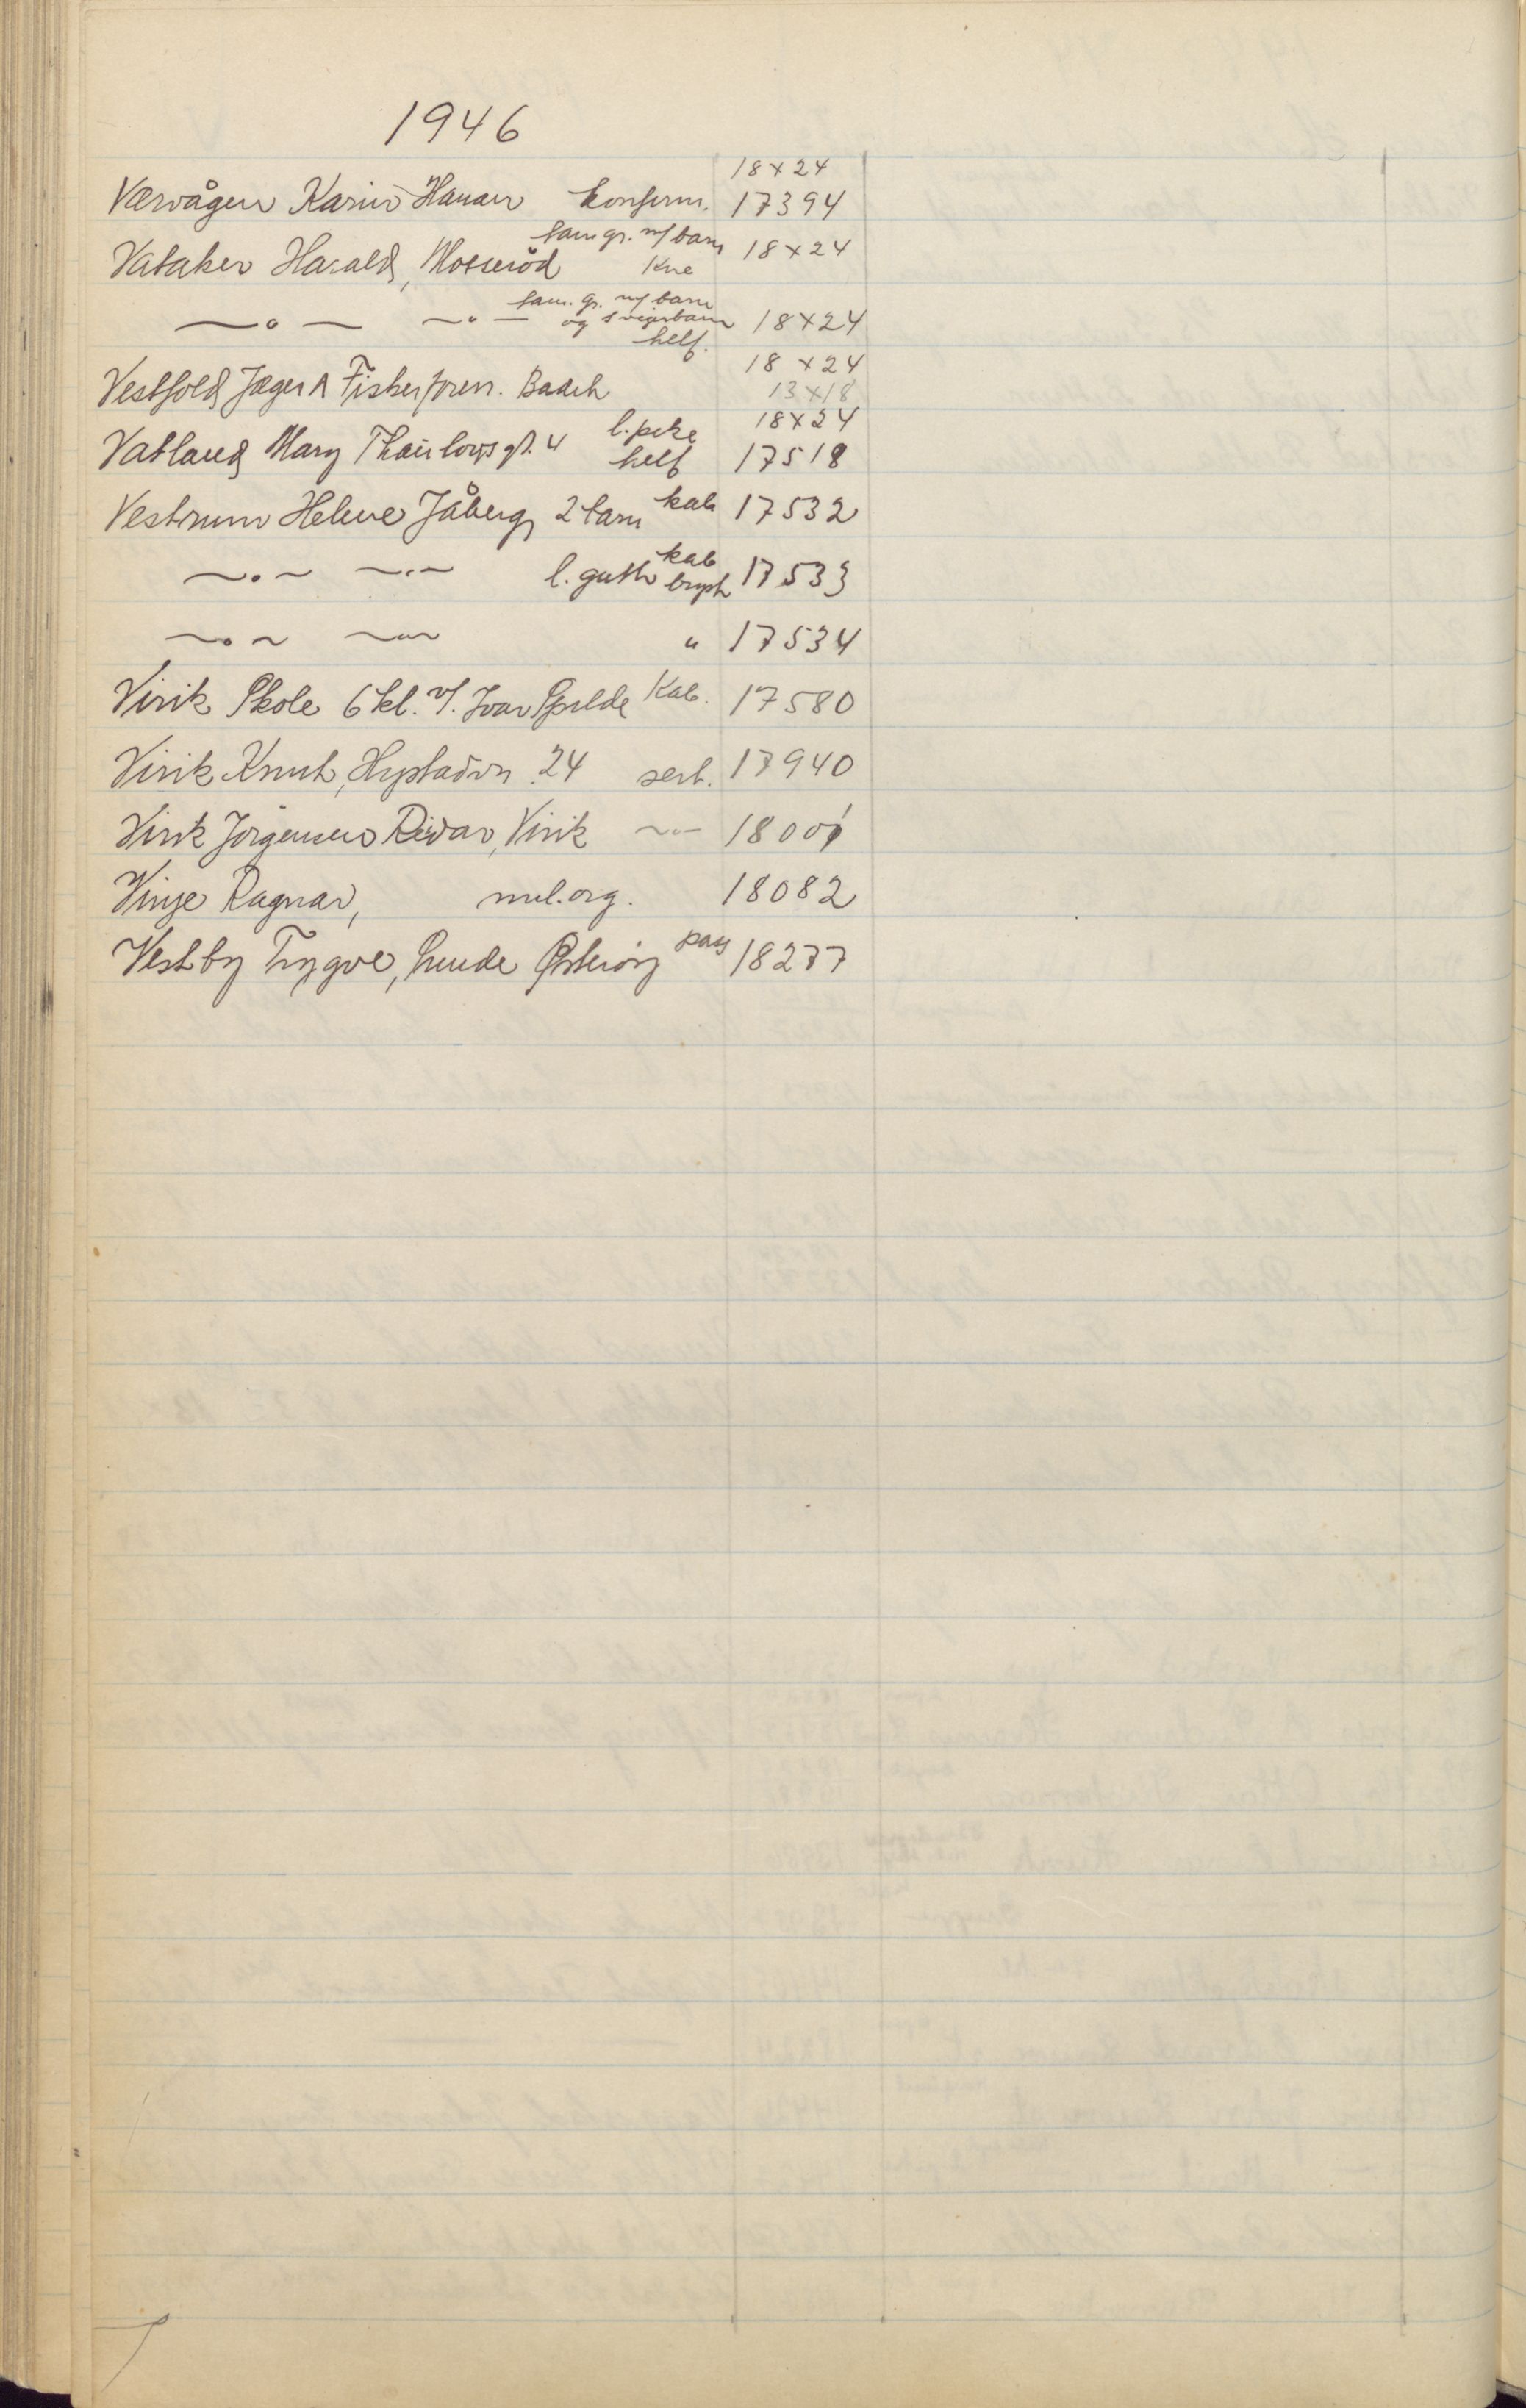 1946
18x24
Værvågen Karin Hauan konfirm. 17394
fam gr. m/ barn
Vataker Harald, Mosserød Kne 18x24
fam. gr. m/ barn
—〃— —〃— og svigerbarn 18x24
helf.
18 x 24
Vestfold Jæger & Fisker foren. Badeh 13x18
l. pike 18x24
Vatland Mary Thaulows gt. 4 helf 17518
Vestrum Helene Jåberg 2 barn kab 17532
kab
—〃— —〃— l. gutt bryst 17533
—〃— —〃— " 17534
Virik Skole 6 kl. v/. Ivar Spilde Kab. 17580
Virik Knut, Hystadvn 24 sert. 17940
Virik Jørgensen Reidar, Virik —〃— 18001
Vinje Ragnar, mel. org. 18082
Vestby Trygve, Lunde Østerøy pass 18277